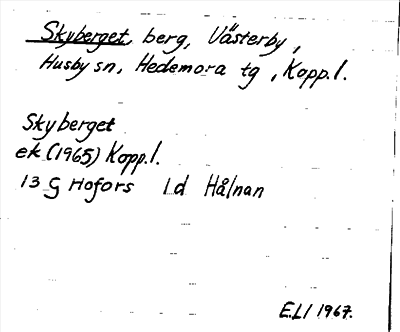 Skyberget, berg, Västerby,
Husby sn, Hedemora tg, Kopp.l.
Skyberget
ek (1965) Kopp.l.
13 G Hofors 1 d Hålnan
E.LI 1967.